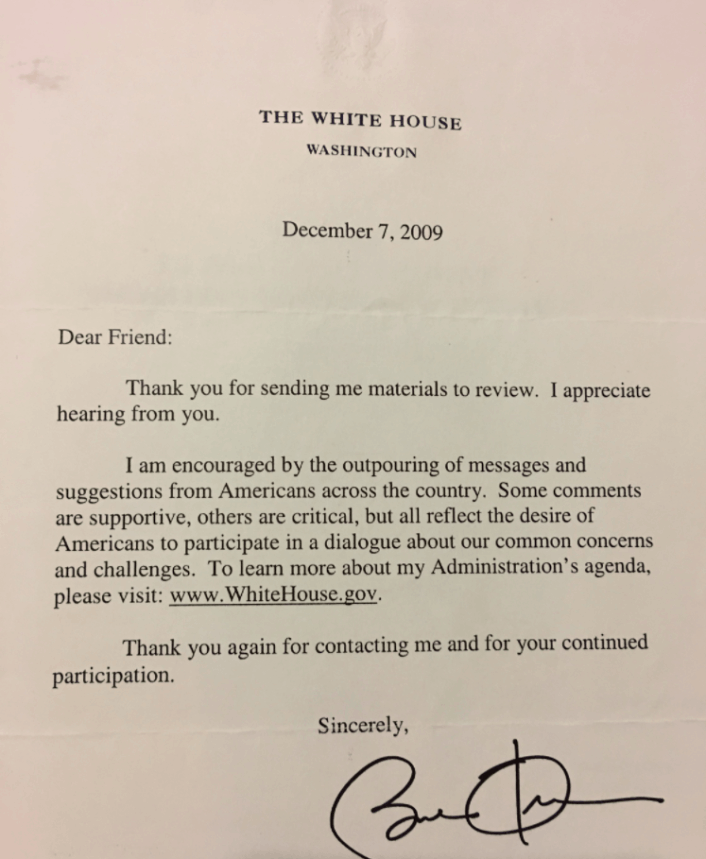 THE WHITE HOUSE
WASHINGTON
December 7, 2009
Dear Friend:
Thank you for sending me materials to review. I appreciate
hearing from you.
I am encouraged by the outpouring of messages and
suggestions from Americans across the country. Some comments
are supportive, others are critical, but all reflect the desire of
Americans to participate in a dialogue about our common concerns
and challenges. To learn more about my Administration's agenda,
please visit: www.WhiteHouse.gov.
Thank you again for contacting me and for your continued
participation.
Sincerely,